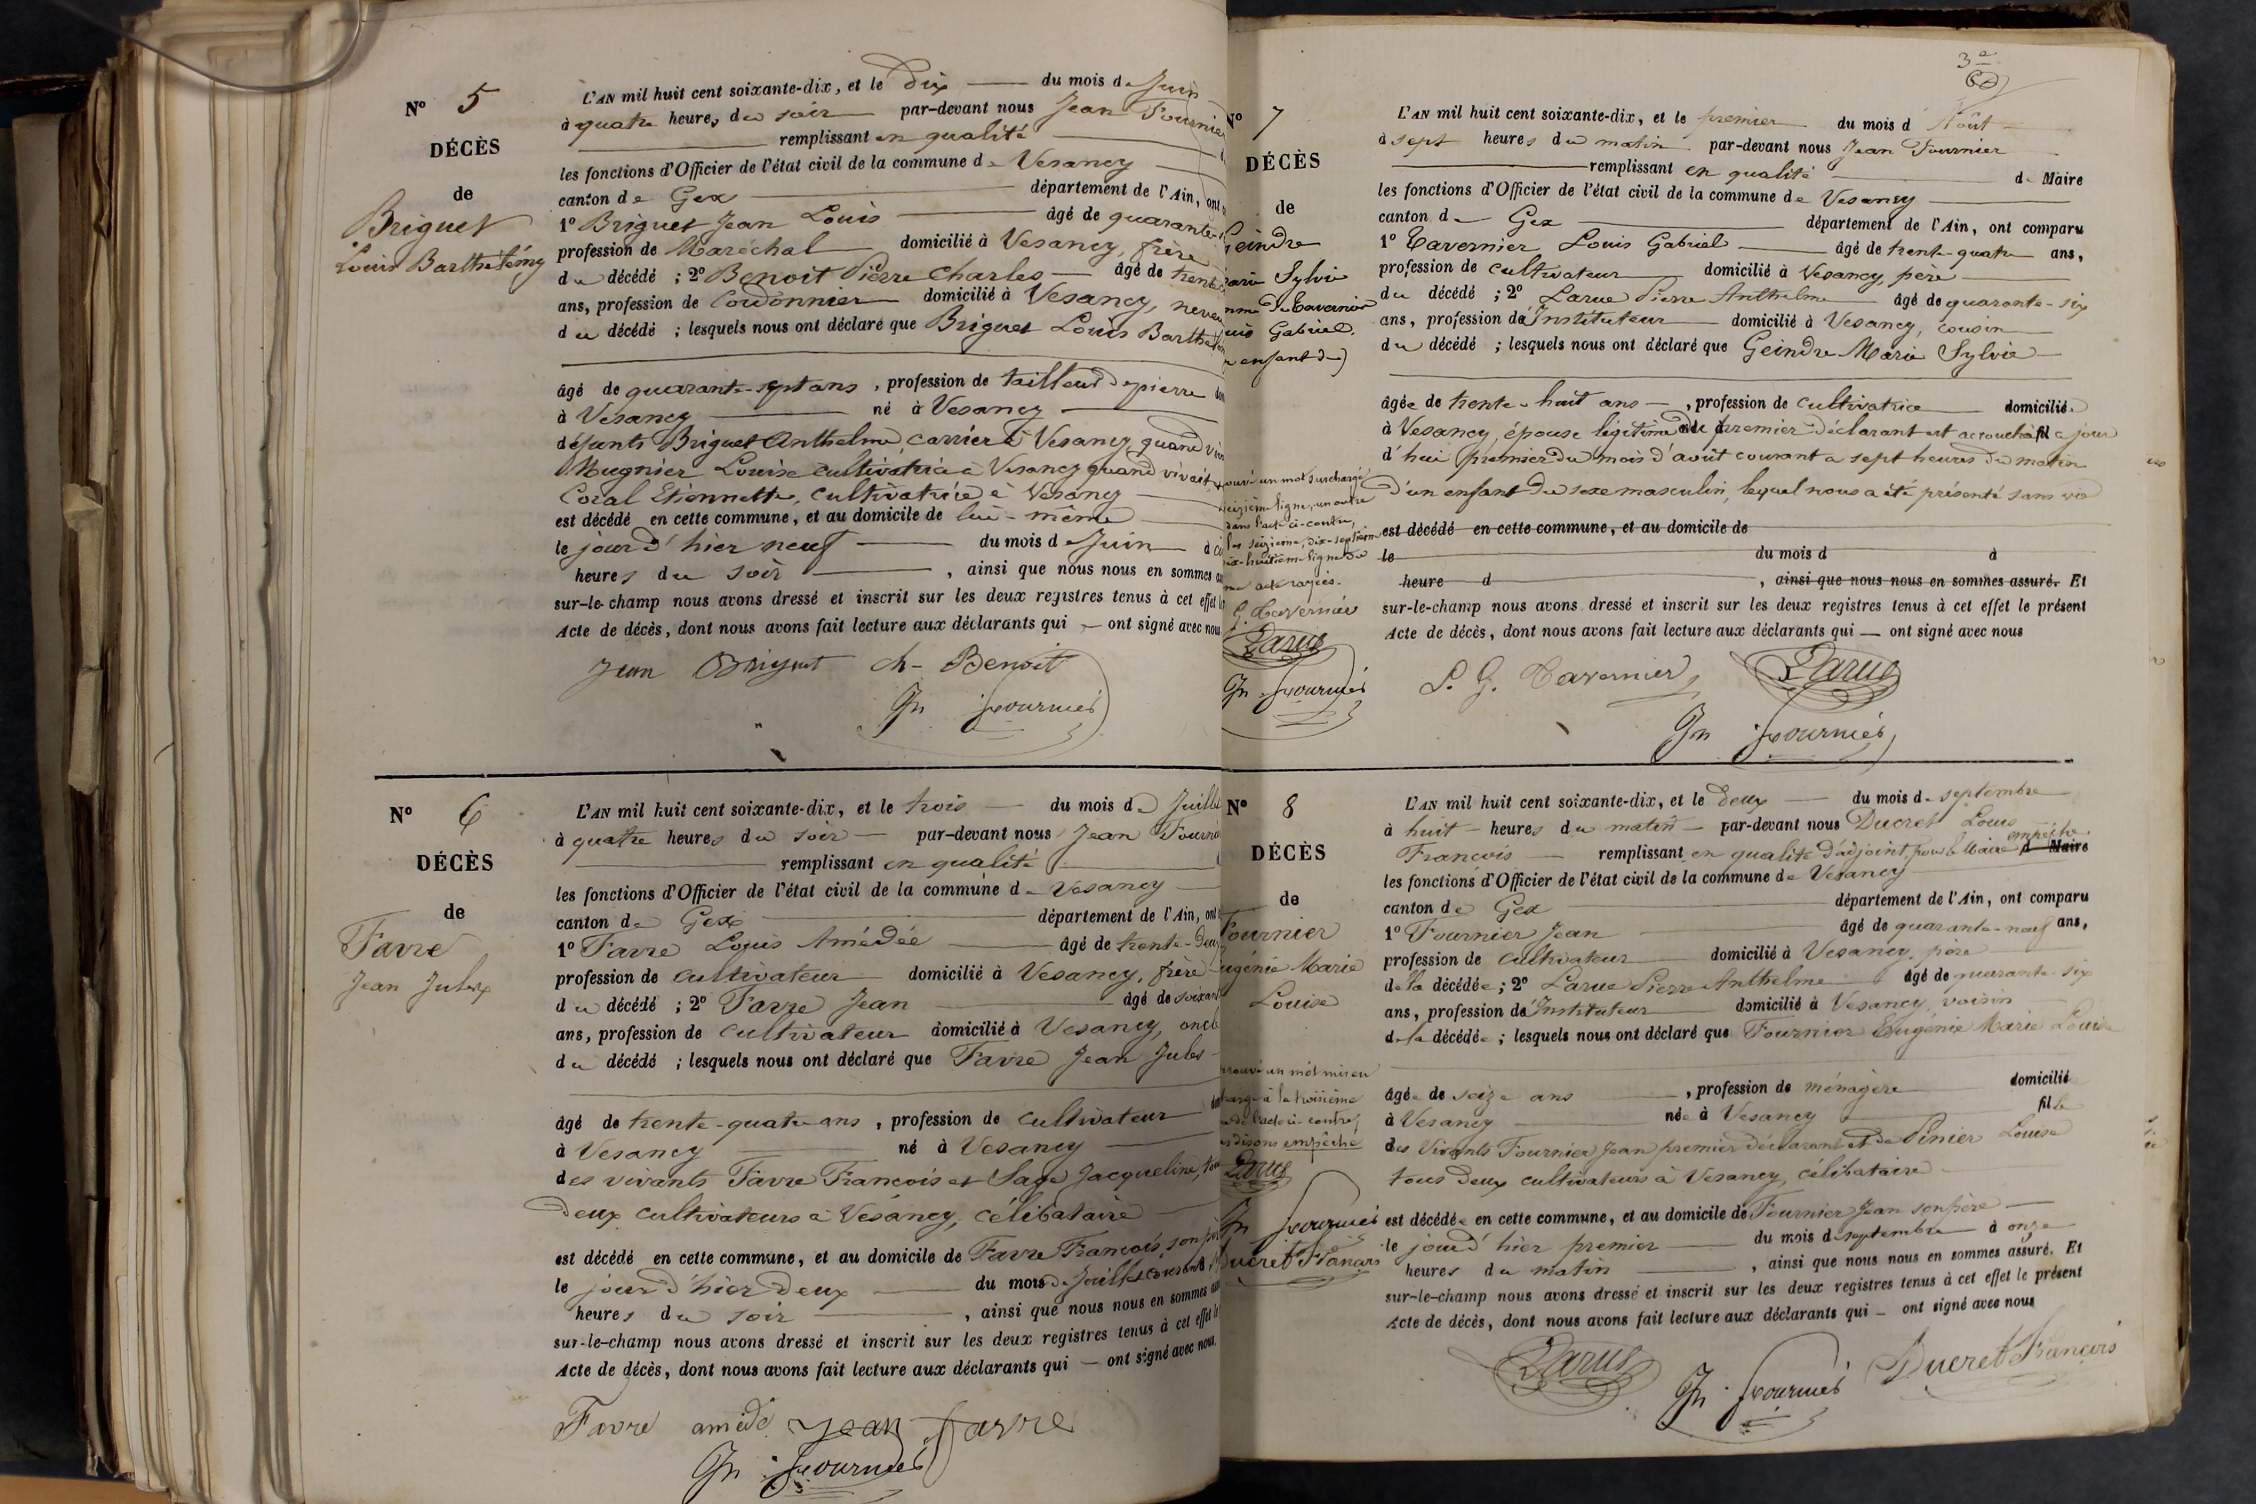 N° 5
DÉCÈS
de
Briguet
Louis Barthélémy
L'AN mil huit cent soixante-dix, et le dix du mois de Juin
à quatre heures du soir par-devant nous Jean Fournier
remplissant en qualité
les fonctions d'Officier de l'état civil de la commune de Vesancy
canton de Gex département de l'Ain, ont
1° Briguet Jean Louis âgé de quarante
profession de Maréchal domicilié à Vesancy, frère
du décédé ; 2° Benoit Pierre Charles âgé de trente
ans, profession de Cordonnier domicilié à Vesancy, neveu
du décédé ; lesquels nous ont déclaré que Briguet Louis Barthélé
âgé de quarante-sept ans, profession de tailleur de pierre
à Vesancy né à Vesancy
défunts Briguet Anthelme carrier à Vesancy quand
Mugnier Louise cultivatrice à Vesancy quand vivait,
Coral Etiennette, cultivatrice à Vesancy
est décédé en cette commune, et au domicile de lui-même
le jour d'hier neuf du mois de Juin
heures du soir, ainsi que nous nous en sommes
sur-le-champ nous avons dressé et inscrit sur les deux registres tenus à cet effet
Acte de décès, dont nous avons fait lecture aux déclarants qui — ont signé avec nous
Jean Briguet ch- Benoit
Jn Fournier
N° 6
DÉCÈS
de
Favre
Jean Jules
L'AN mil huit cent soixante-dix, et le trois du mois de Juillet
à quatre heures du soir par-devant nous Jean Fournier
remplissant en qualité
les fonctions d'Officier de l'état civil de la commune de Vesancy
canton de Gex département de l'Ain, ont
1° Favre Louis Amédée âgé de trente-deux
profession de cultivateur domicilié à Vesancy, frère
du décédé ; 2° Favre Jean âgé de soixante
ans, profession de cultivateur domicilié à Vesancy, oncle
du décédé ; lesquels nous ont déclaré que Favre Jean Jules
âgé de trente-quatre ans, profession de cultivateur
à Vesancy né à Vesancy
des vivants Favre François et Sage Jacqueline,
deux cultivateurs à Vésancy, célibataire
est décédé en cette commune, et au domicile de Favre François, son père
le jour d'hier deux du mois de Juillet courant
heures du soir, ainsi que nous nous en sommes
sur-le-champ nous avons dressé et inscrit sur les deux registres tenus à cet effet
Acte de décès, dont nous avons fait lecture aux déclarants qui — ont signé avec nous.
Favre amédé Jean Favre
Jn Fournier
3e
N° 7
DÉCÈS
de
Geindre
Marie Sylvie
femme De Tavernier
Louis Gabriel.
enfant de)
L'AN mil huit cent soixante-dix, et le premier du mois d'Août
à sept heures du matin par-devant nous Jean Fournier
remplissant en qualité de Maire
les fonctions d'Officier de l'état civil de la commune de Vesancy
canton de Gex département de l'Ain, ont comparu
1° Tavernier Louis Gabriel âgé de trente-quatre ans,
profession de cultivateur domicilié à Vesancy, père
du décédé ; 2° Larue Pierre Anthelme âgé de quarante-six
ans, profession d'Instituteur domicilié à Vesancy, cousin
du décédé ; lesquels nous ont déclaré que Geindre Marie Sylvie
âgée de trente-huit ans, profession de cultivatrice domiciliée
à Vesancy, épouse légitime du premier déclarant est accouchée ce jour
d'hui premier du mois d'août courant à sept heures du matin
D'un enfant du sexe masculin, lequel nous a été présenté sans vie
est décédé en cette commune, et au domicile de
le du mois d à
heure d , ainsi que nous nous en sommes assuré. Et
sur-le-champ nous avons dressé et inscrit sur les deux registres tenus à cet effet le présent
Acte de décès, dont nous avons fait lecture aux déclarants qui — ont signé avec nous
L. G. Tavernier Larue
Jn Fournier
un mot surchargé
seizième ligne, un autre
dans l'acte ci-contre,
les seizième, dix-septième
dix-huitième ligne du
acte rayées.
G. Tavernier
Larue
Jn Fournier
N° 8
DÉCÈS
de
Fournier
Eugénie Marie
Louise
L'AN mil huit cent soixante-dix, et le deux du mois de septembre
à huit heures du matin par-devant nous Ducret Louis
François remplissant en qualité d'adjoint, pour le Maire empêché Maire
les fonctions d'Officier de l'état civil de la commune de Vesancy
canton de Gex département de l'Ain, ont comparu
1° Fournier Jean âgé de quarante-neuf ans,
profession de cultivateur domicilié à Vesancy, père
de la décédée ; 2° Larue Pierre Anthelme âgé de quarante-six
ans, profession d'Instituteur domicilié à Vesancy, voisin
de la décédée ; lesquels nous ont déclaré que Fournier Eugénie Marie Louise
âgée de seize ans, profession de ménagère domicilié
à Vesancy née à Vesancy fille
des vivants Fournier Jean premier déclarant et de Pinier Louise
tous deux cultivateurs à Vesancy, célibataire
est décédée en cette commune, et au domicile de Fournier Jean son père
le jour d'hier premier du mois de septembre à onze
heures du matin, ainsi que nous nous en sommes assuré. Et
sur-le-champ nous avons dressé et inscrit sur les deux registres tenus à cet effet le présent
Acte de décès, dont nous avons fait lecture aux déclarants qui — ont signé avec nous
Larue Jn Fournier Ducret François
un mot mis en
à la troisième
de l'acte ci-contre,
disons empêché
Larue
Jn Fournier
Ducret François